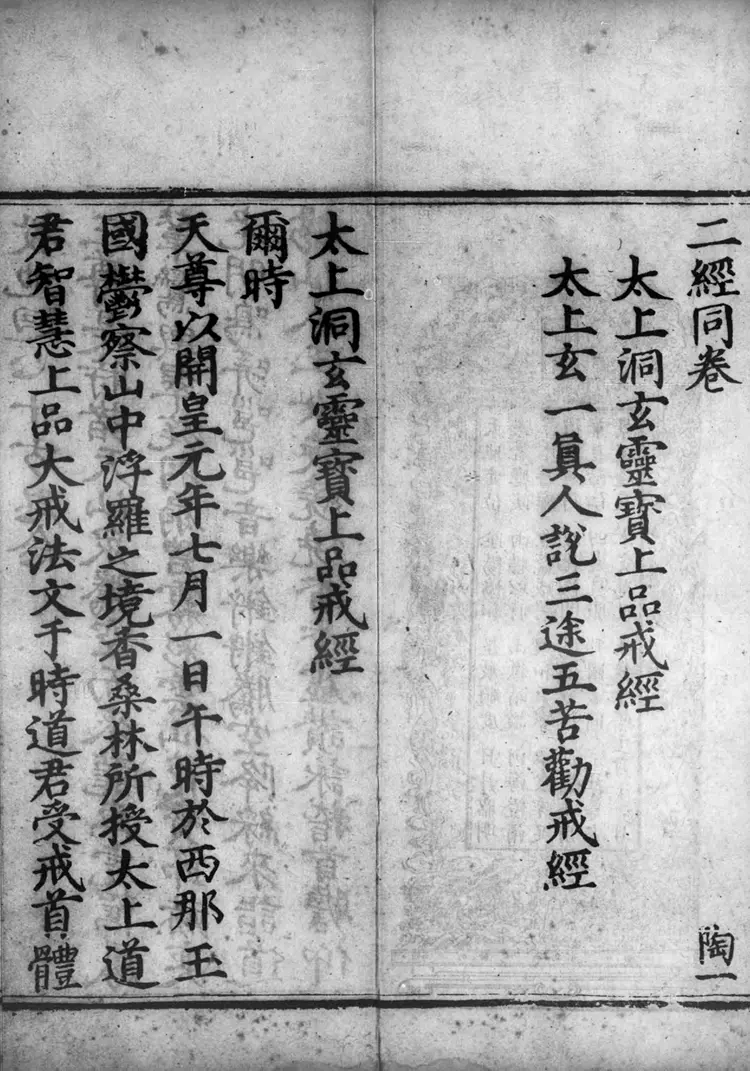 二經同卷 陶一
太上洞玄靈寶上品戒經
太上玄一真人說三途五苦勸戒經
太上洞玄靈寶上品戒經
爾時
天尊以開皇元年七月一日午時於西那玉
國鬱察山中浮羅之境香桑林所授太上道
君智慧上品大戒法文于時道君受戒首體